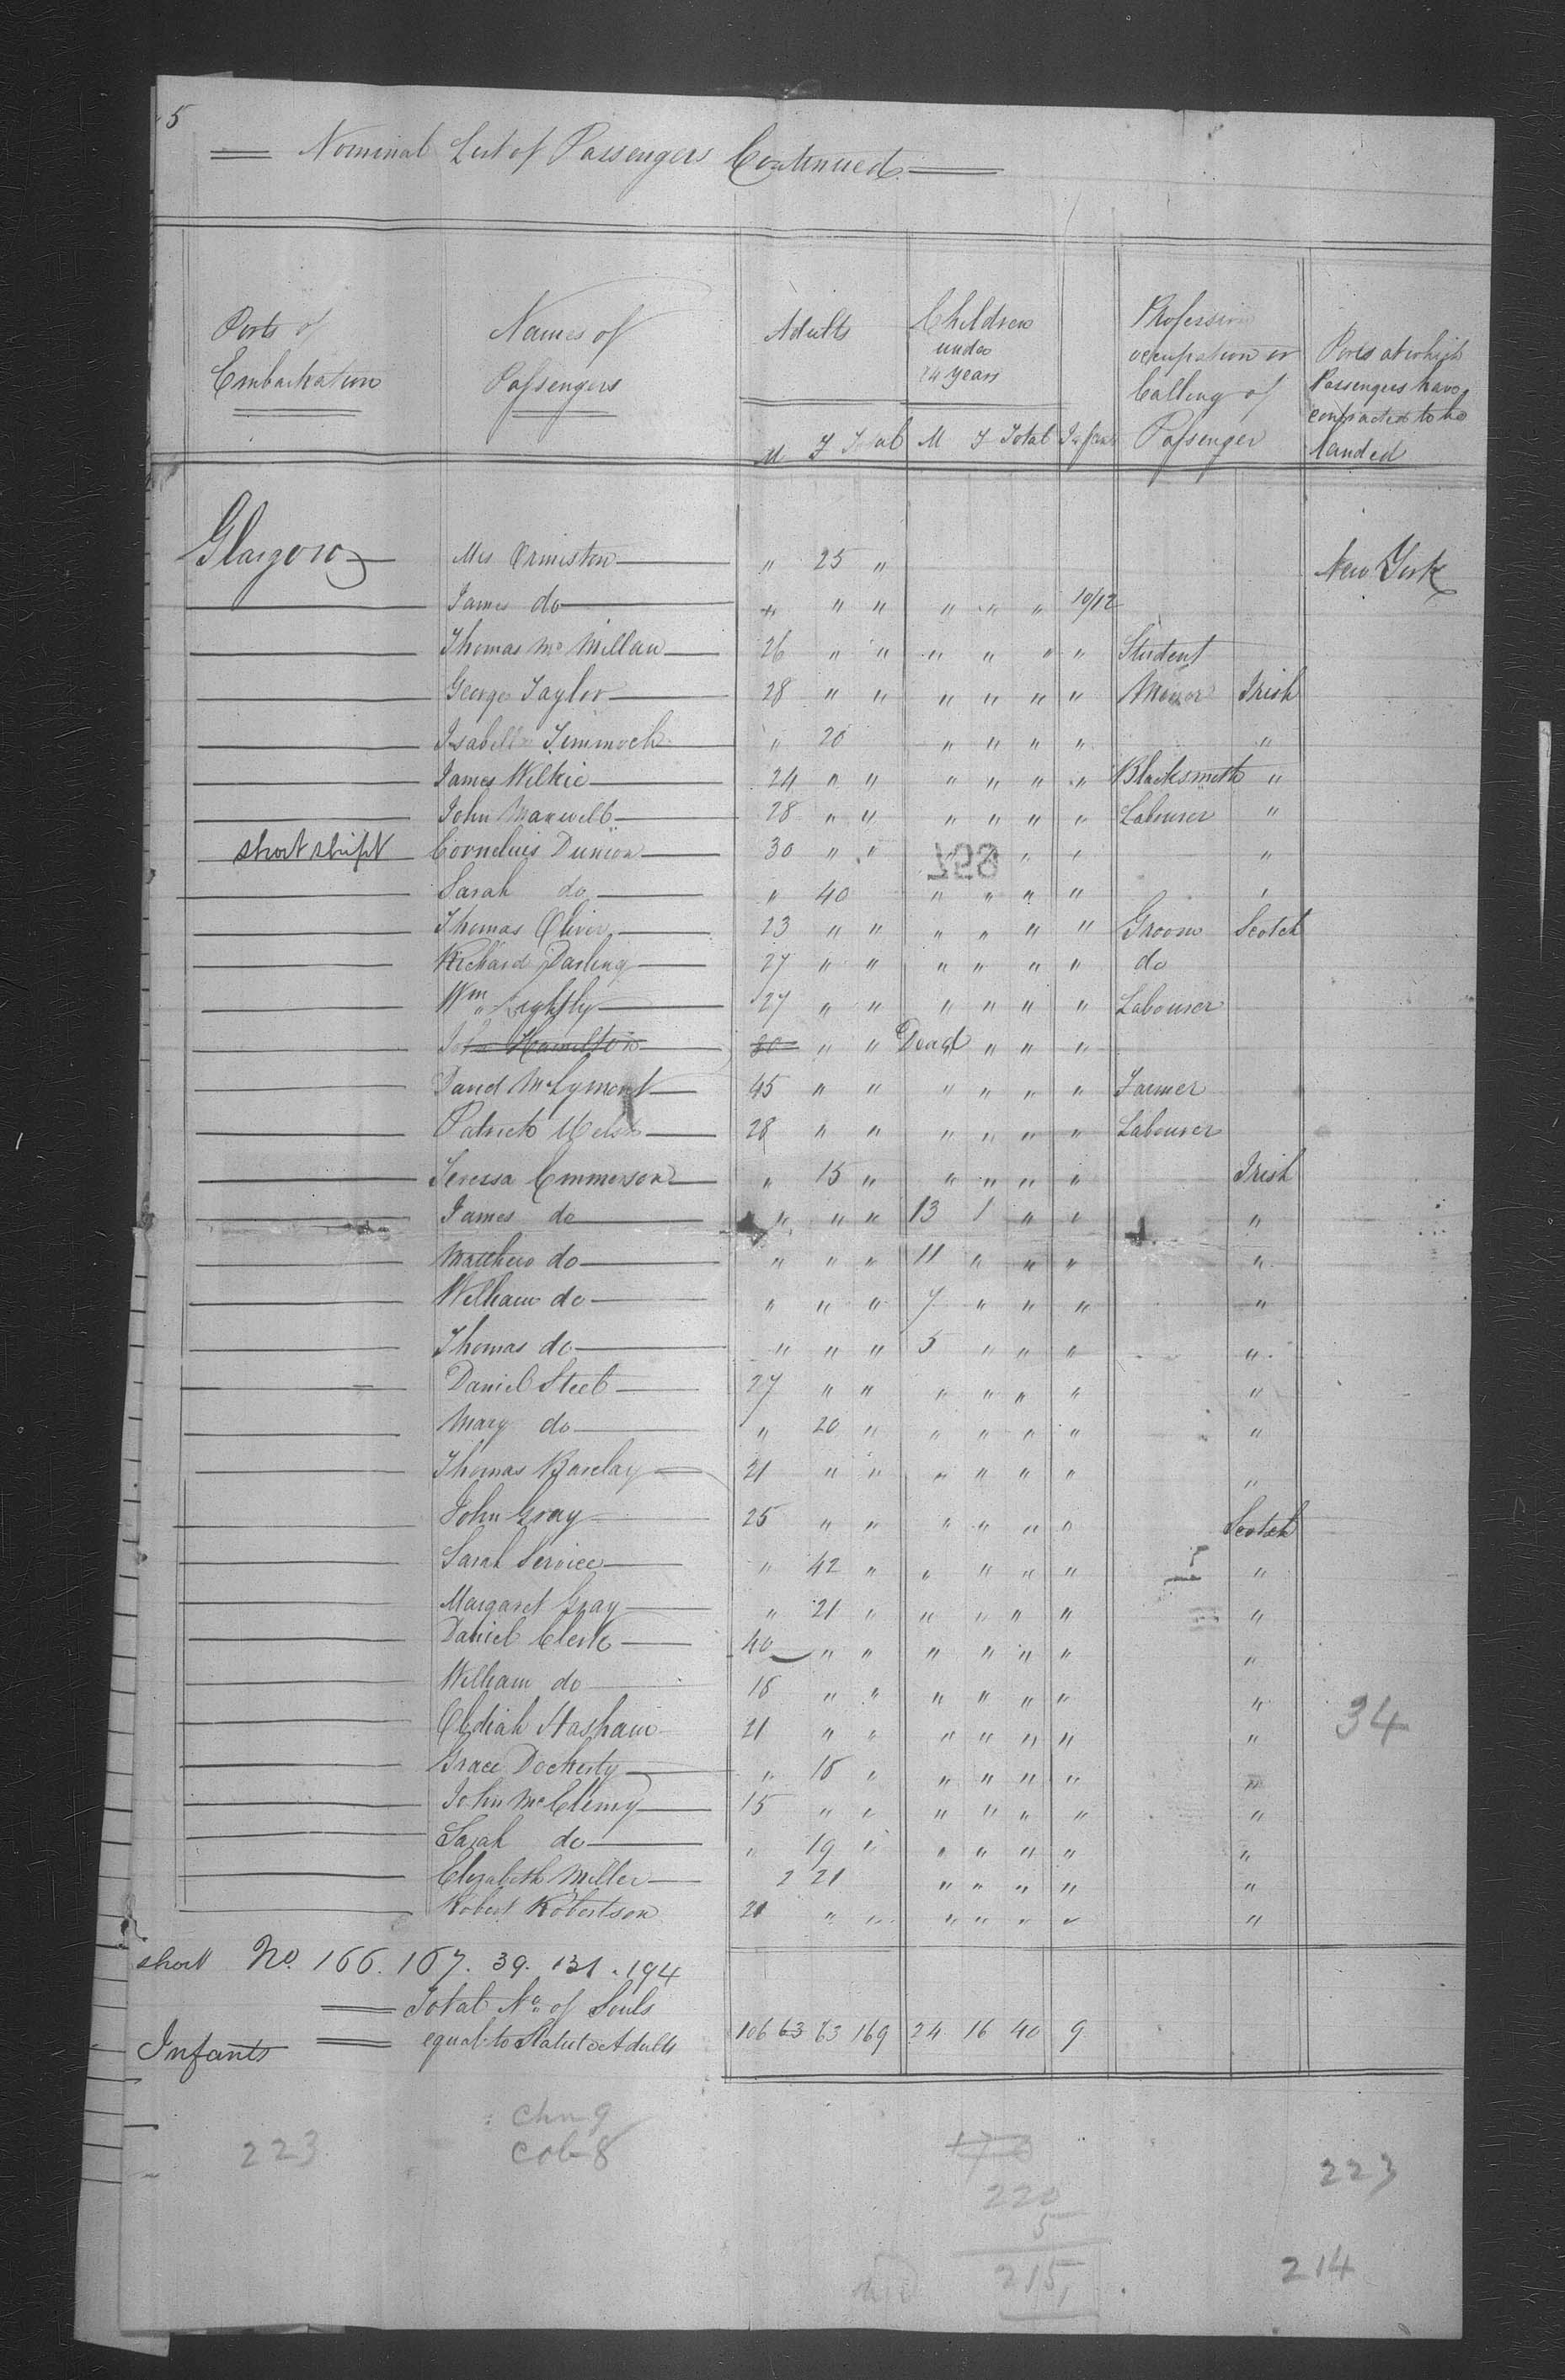 5
Nominal List of Passengers Continued
Ports of Embarkation | Names of Passengers | Adults M F Total | Children under 14 years M F Total | Infants | Profession occupation or Calling of Passenger | Ports at which Passengers have contracted to be landed
Glasgow Mrs Ormiston " 25 " New York
James do " " " " " " 10/12
Thomas Mc Millan 26 " " " " " " Student
George Taylor 28 " " " " " " Irish
Isabella 20 " " " " "
James Wilkie 24 " " " " " " Blacksmith "
John Maxwell 28 " " " " " " Labourer "
short shipt Cornelius 30 " " " " " "
692
Sarah do " 40 " " " " "
Thomas Oliver 23 " " " " " " Groom Scotch
Richard Darling 27 " " " " " " do
Wm 27 " " " " " " Labourer
John Hamilton 20 " " Dead " " " "
David McLymont 45 " " " " " " Farmer
Patrick 28 " " " " " " Labourer
Teressa Emmerson " 15 " " " " " Irish
James do " " " 13 1 " " "
Matthew do " " " 11 " " " "
William do " " " 7 " " " "
Thomas do " " " 5 " " " "
Daniel Steel 27 " " " " " " "
Mary do " 20 " " " " " "
Thomas Barclay 21 " " " " " " "
John Gray 25 " " " " " " Scotch
Sarah Service " 42 " " " " " "
Margaret Gray " 21 " " " " " "
Daniel Clerk 40 " " " " " " "
William do 18 " " " " " " "
21 " " " " " " " 34
Grace Docherty " 18 " " " " " "
John 15 " " " " " " "
Sarah do " 19 " " " " " "
Elizabeth Miller 2 21 " " " " "
Robert Robertson 21 " " " " " " "
short No. 166. 167. 39. 131. 194
Total No of Souls
Infants equal to Statute Adults 106 63 63 169 24 16 40 9
chn 9
223 cob-8 223
220
5
215 214